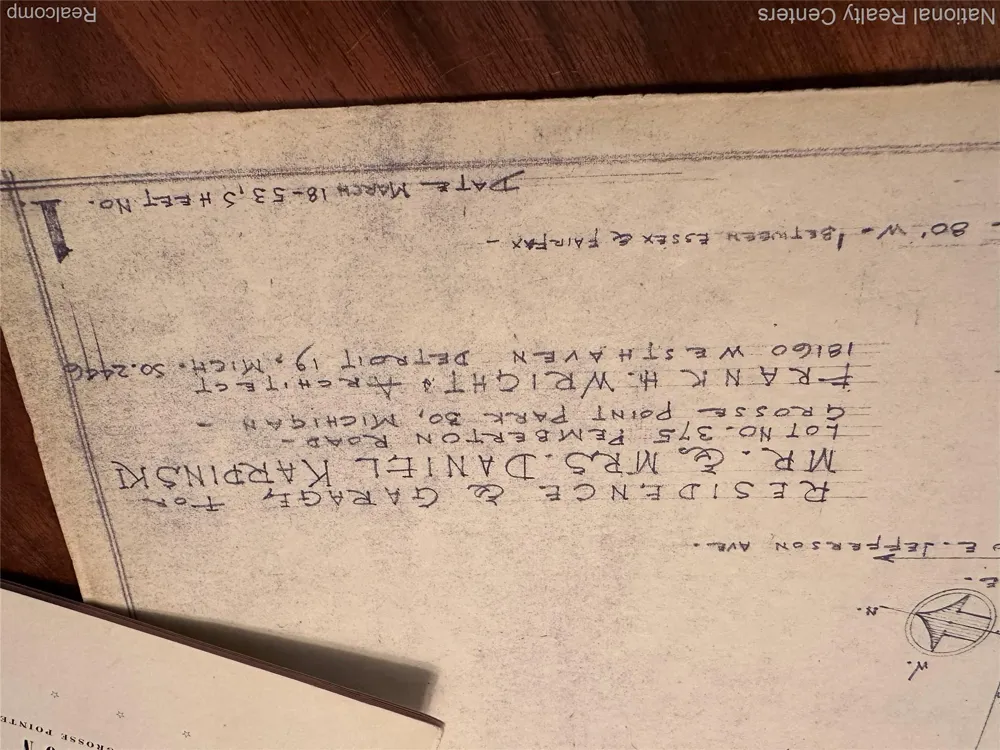 TO E. JEFFERSON AVE.
E.
N.
W.
RESIDENCE & GARAGE, FOR
MR. & MRS. DANIEL KARPINSKI
LOT NO. 375 PEMBERTON ROAD-
GROSSE POINT PARK 30, MICHIGAN -
FRANK H. WRIGHT, ARCHITECT
18160 WESTHAVEN DETROIT 19, MICH. SO. 2446
80' W - BETWEEN ESSEX & FAIRFAX -
DATE MARCH 18-53, SHEET NO. 1.
GROSSE POINTE
National Realty Centers
Realcomp